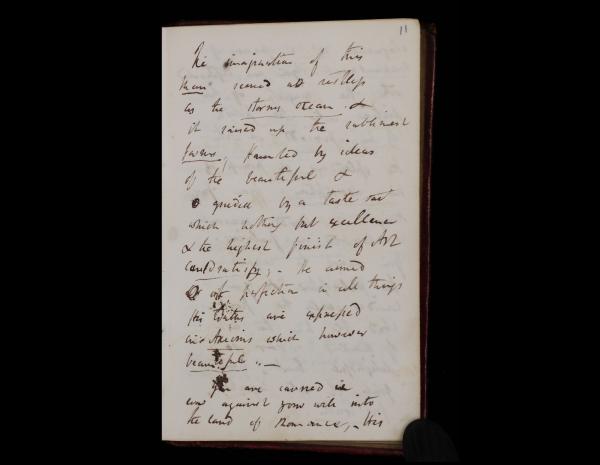 11
The imagination of this
man seemed as restless
as the stormy ocean. &
it raised up the sublimest
forms, haunted by ideas
of the beautiful &
guided by a taste
which nothing but excellence
& the highest finish of Art
could satisfy, - he aimed
at perfection in all things
His are expressed
in Axioms which however
beautiful . -
You are carried
against your will into
the land of Romance, - His